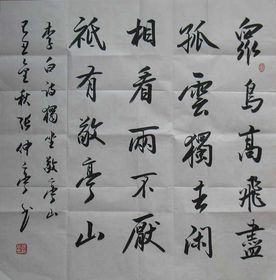 眾鳥高飛盡
孤雲獨去闲
相看兩不厭
祇有敬亭山
李白詩獨坐敬亭山
己丑金秋张仲亭书